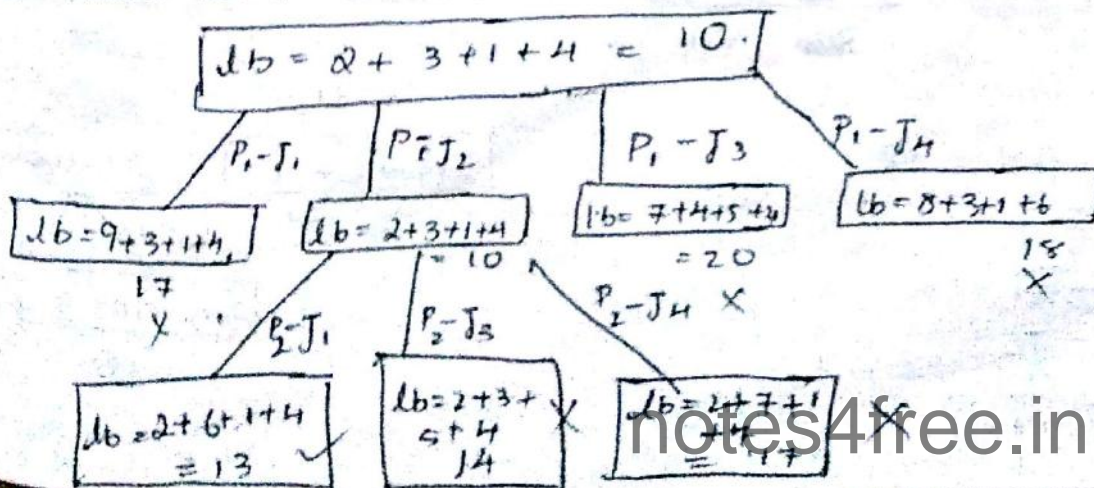 lb = 2 + 3 + 1 + 4 = 10.
P1-J1
P1-J2
P1-J3
P1-J4
lb=9+3+1+4,
17
X
lb=2+3+1+4
= 10
lb= 7+4+5+4
= 20
X
lb=8+3+1+6
18
X
P2-J1
P2-J3
P2-J4
lb=2+6+1+4
= 13 ✓
lb=2+3+
5+4
14
X
lb=2+7+1
=
X
notes4free.in